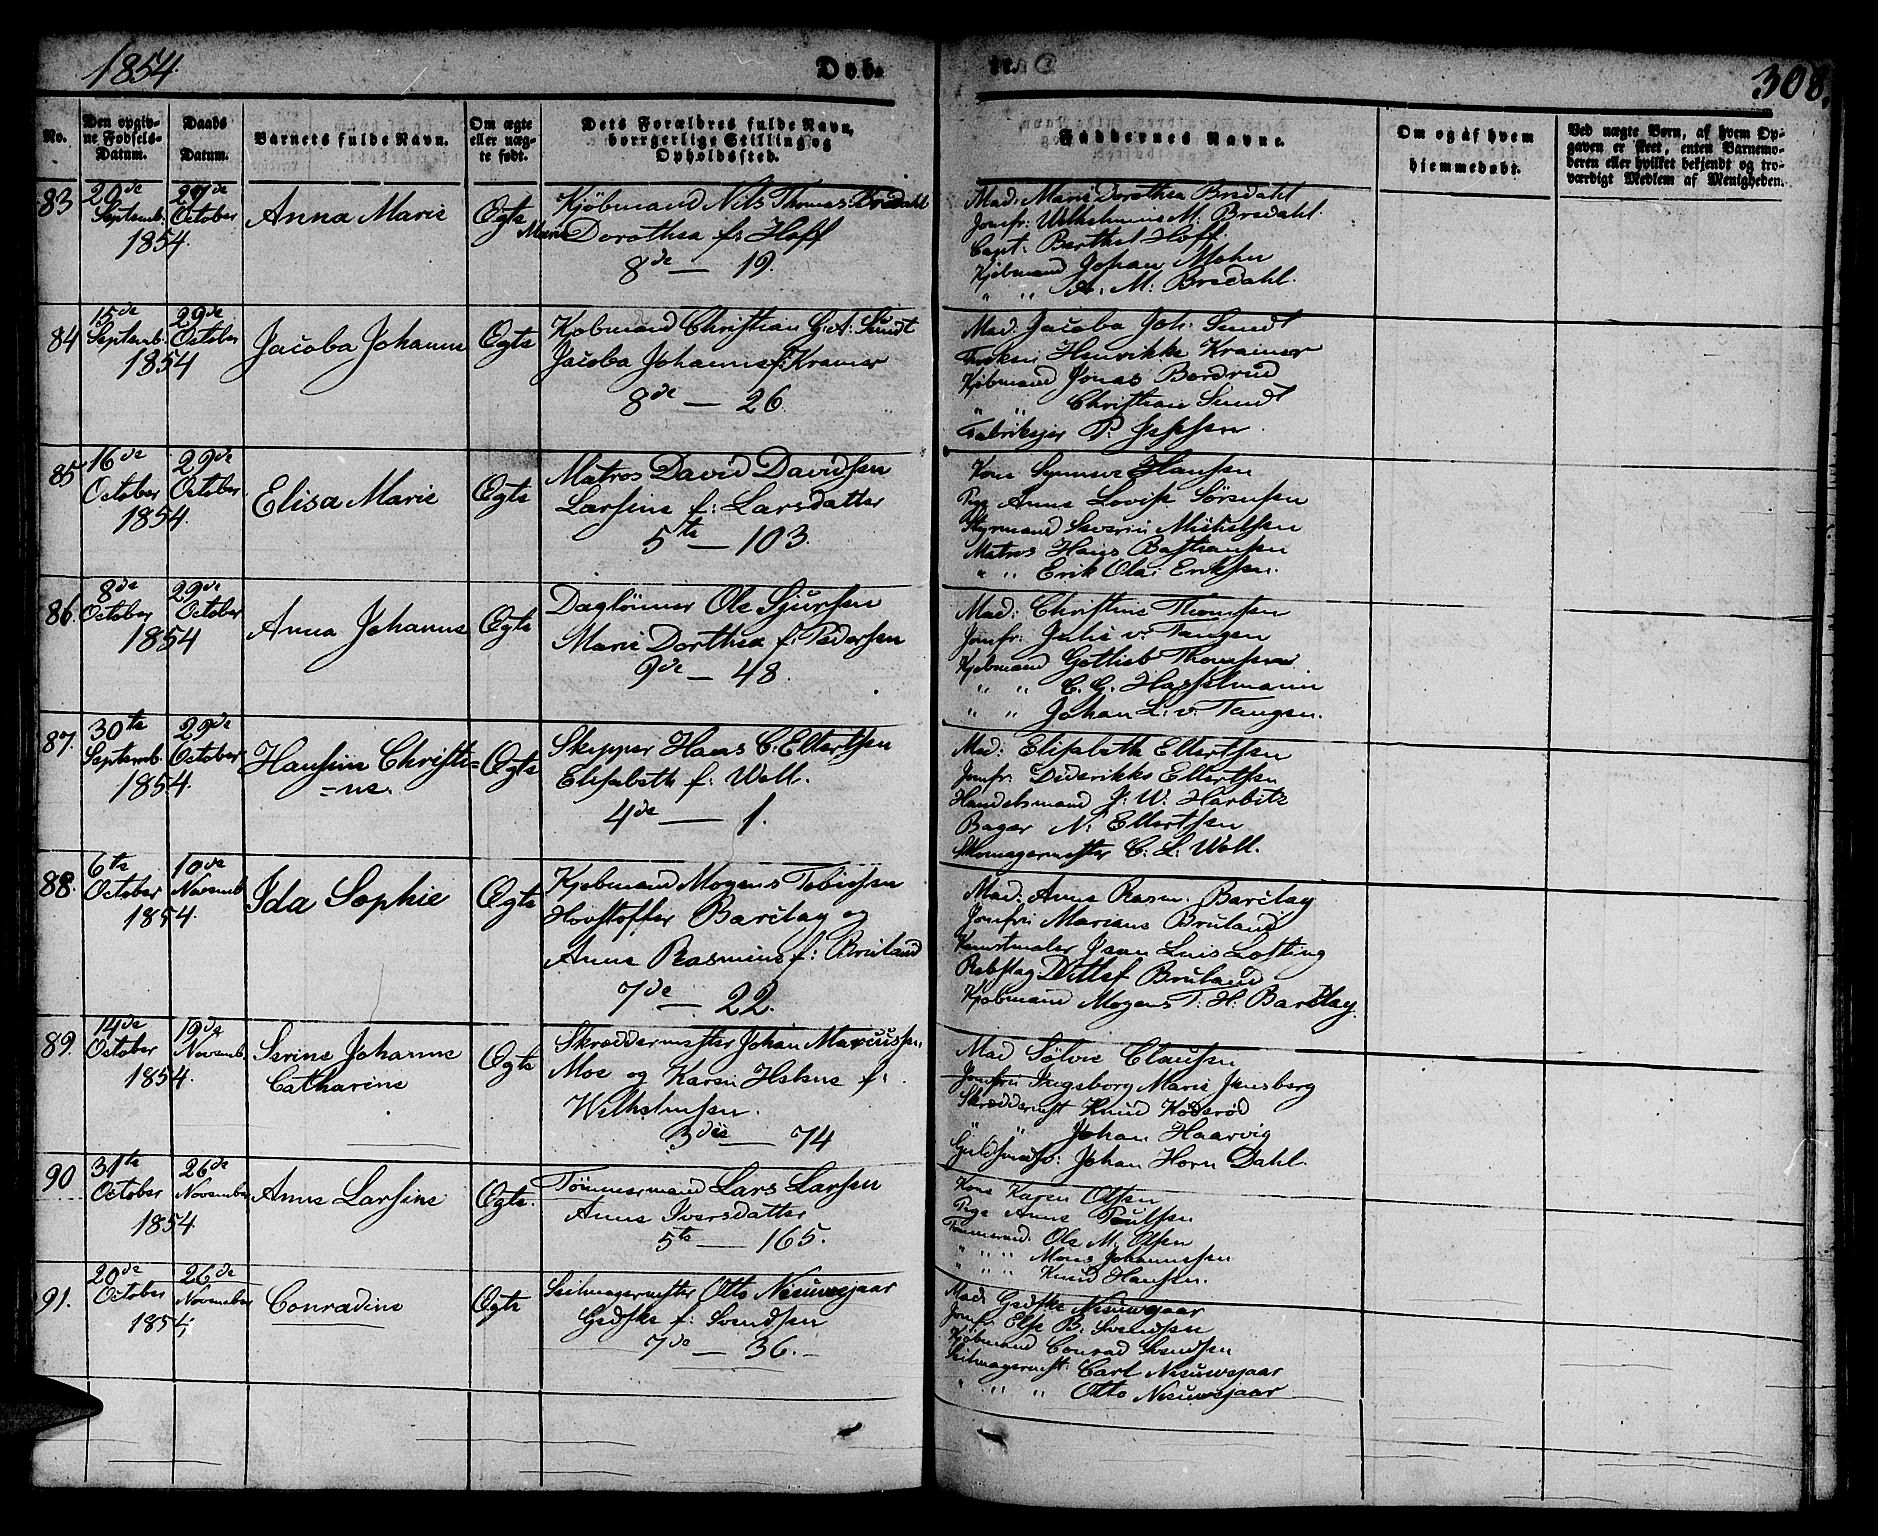 1854.
Døb-
te.
308.
No.
Den opgiv-
ne Fødsels-
Datum.
Daabs
Datum.
Barnets fulde Navn.
Om ægte
eller uæg-
te født.
Dets Forælbres fulde Navn,
borgerlige Stilling og
Opholdssted.
Faddernes Navne.
Om og af hvem
hjemmedøbt.
Ved uægte Børn, af hvem Op-
gaven er skeet, enten Barnemo-
deren eller hvilket bekjendt og tro-
værdigt Medlem af Menigheden.
83
20de
Septemb.
1854.
29de
October
Anna Marie
Ægte
Kjöbmand Nils Thomas Bredahl
Marie Dorothea f: Hoff
8de — 19.
Mad: Marie Dorothea Bredahl
Jomfr: Wilhelmine M. Bredahl.
Capt: Berthel Hoff
Kjöbmand Johan Mohn
" " A. M. Bredahl.
84
15de
Septemb.
1854
29de
October
Jacoba Johanne
Ægte
Kobmand Christian G. A. Sundt
Jacoba Johanne f: Kramer
8de — 26.
Mad: Jacoba Joh. Sundt
Henrikke Kramer
Kjöbmand Jonas Bordrud
" " Christian Sundt
P. Jessen.
85
16de
October
1854.
29de
October
Elisa Marie
Ægte
Matros David Davidsen
Larsine f: Larsdatter
5te — 103.
Kone Hansen
Pige Anne Lovise Sörensen
Styrmand Severin Mikkelsen
Matros Hans Bastiansen
" " Erik Olai Eriksen.
86.
8de
October
1854
29de
October
Anna Johanne
Ægte
Daglönner Ole Sjursen
Marie Dorthea f: Pedersen
9de — 48.
Mad: Christine Thomsen
Jomfr: Julie v: Tangen
Kjöbmand Gotlieb Thomsen
" " C. G. Hasselmann
" " Johan L. v. Tangen.
87.
30te
Septemb.
1854.
29de
October
Hansine Christi=
=ne.
Ægte
Skipper Hans C. Ellertsen
Elisabeth f: Woll.
4de — 1.
Mad: Elisabeth Ellertsen
Jomfr: Diderikke Ellertsen
Handelsmand J. W. Harbitz
Bager N. Ellertsen
Skomagermester C. L. Woll.
88.
6te
October
1854.
10de
Novemb.
Ida Sophie
Ægte
Kjöbmand Mogens Tobiesen
Hovstoffer Barclay og
Anne Rasmine f: Bruland
7de — 22.
Mad: Anne Rasm. Barclay
Jomfr: Mariane Bruland
Kunstmaler Jean Luis Losting
Rebslag. Ditlef Bruland
Kjöbmand Mogens T. H. Barclay.
89.
14de
October
1854.
19de
Novemb.
Serine Johanne
Catharine
Ægte
Skræddermester Johan Marcussen
Moe og Karen Helene f:
Wilhelmsen.
3die — 74
Mad Sölvie Clausen
Jomfru Ingeborg Marie Jensberg
Skræddermst Knud Köderöd
Johan Haarvig
Guldsmedsv: Johan Horn Dahl.
90
31te
October
1854.
26de
November
Anne Larsine
Ægte.
Tömmermand Lars Larsen
Anne Iversdatter
5te — 165.
Kone Karen Olsen
Pige Anne Poulsen
Tömmermd. Ole M. Olsen
" " " Mons Johannessen
" " " Knud Hansen.
91.
20de
October
1854,
26de
November
Conradine
Ægte
Seilmagermester Otto Nieuwejaar
Gedske f: Svendsen
7de — 36.
Mad: Gedske Nieuwejaar
Jomfr: Else B. Svendsen
Kjöbmand Conrad Svendsen
Seilmagermst: Carl Nieuwejaar
" " " Otto Nieuwejaar